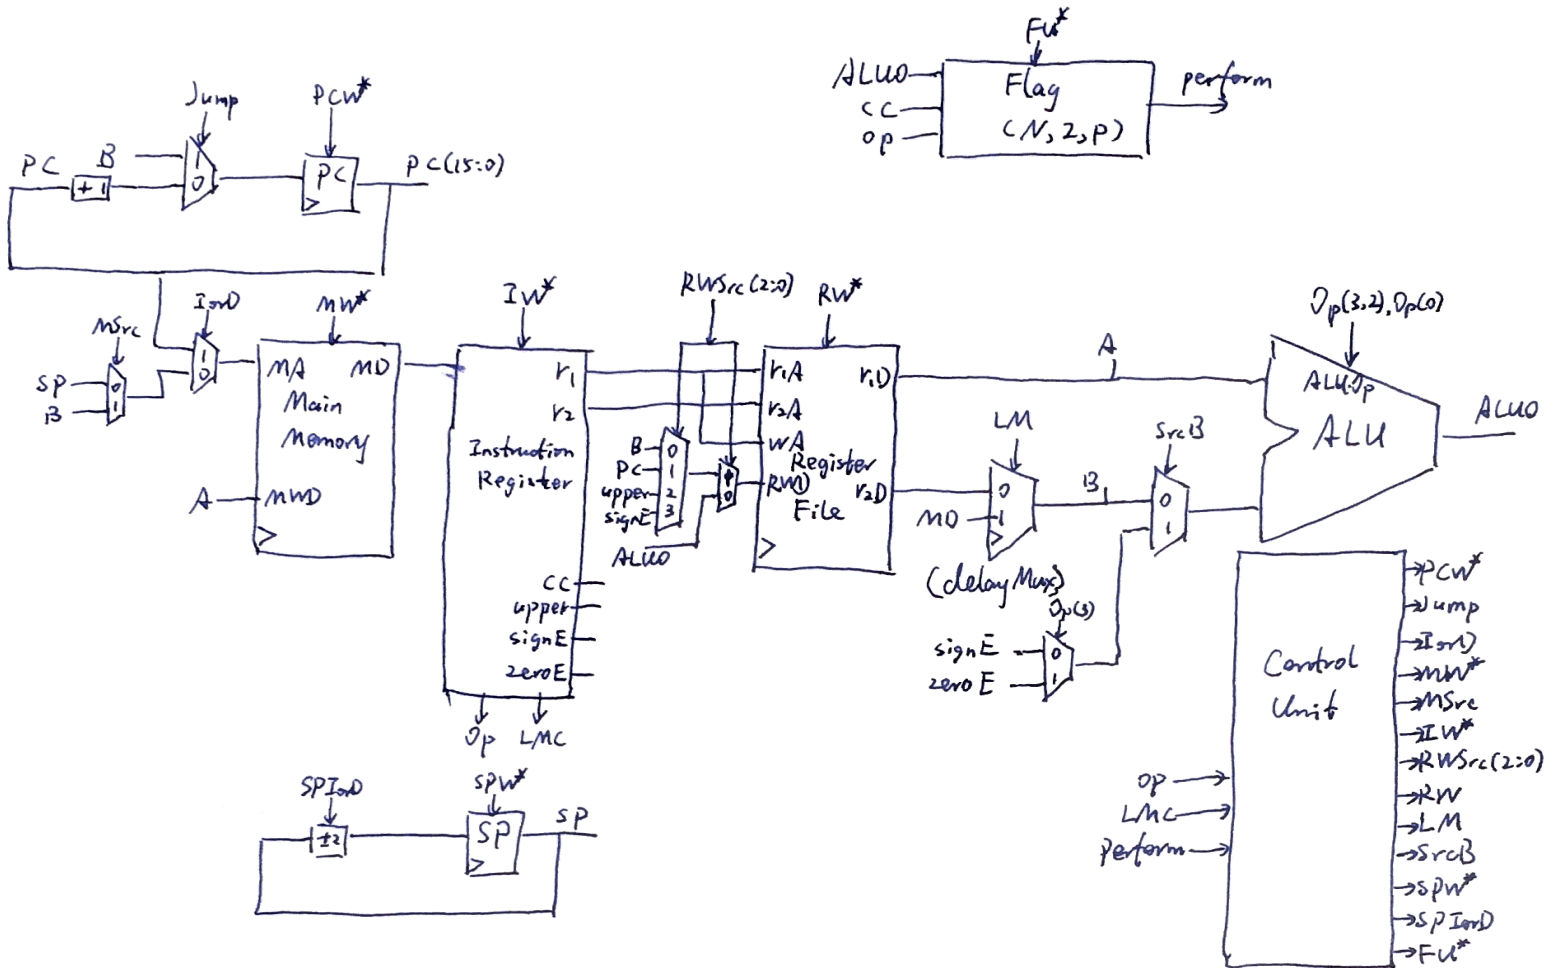 Fu*
ALUO
CC
Op
Flag
(N, Z, P)
perform
Jump
PCW*
PC
B
+1
1
0
PC
PC(15:0)
MSrc
IorD
MW*
SP
B
0
1
1
0
MA
MD
Main
Memory
A
MWD
IW*
r1
r2
Instruction
Register
CC
upper
signE
zeroE
Op
LMC
RWSrc(2:0)
RW*
B
PC
upper
signE
0
1
2
3
ALUO
0
r1A
r1D
r2A
wA
Register
RWD
r2D
File
A
LM
MD
0
1
(delayMux)
B
SrcB
0
1
Op(3)
signE
zeroE
0
1
Op(3,2),Op(0)
ALUOp
ALU
ALUO
SPIorD
SPW*
±2
SP
SP
Control
Unit
Op
LMC
Perform
PCW*
Jump
IorD
MW*
MSrc
IW*
RWSrc(2:0)
RW
LM
SrcB
SPW*
SPIorD
FU*